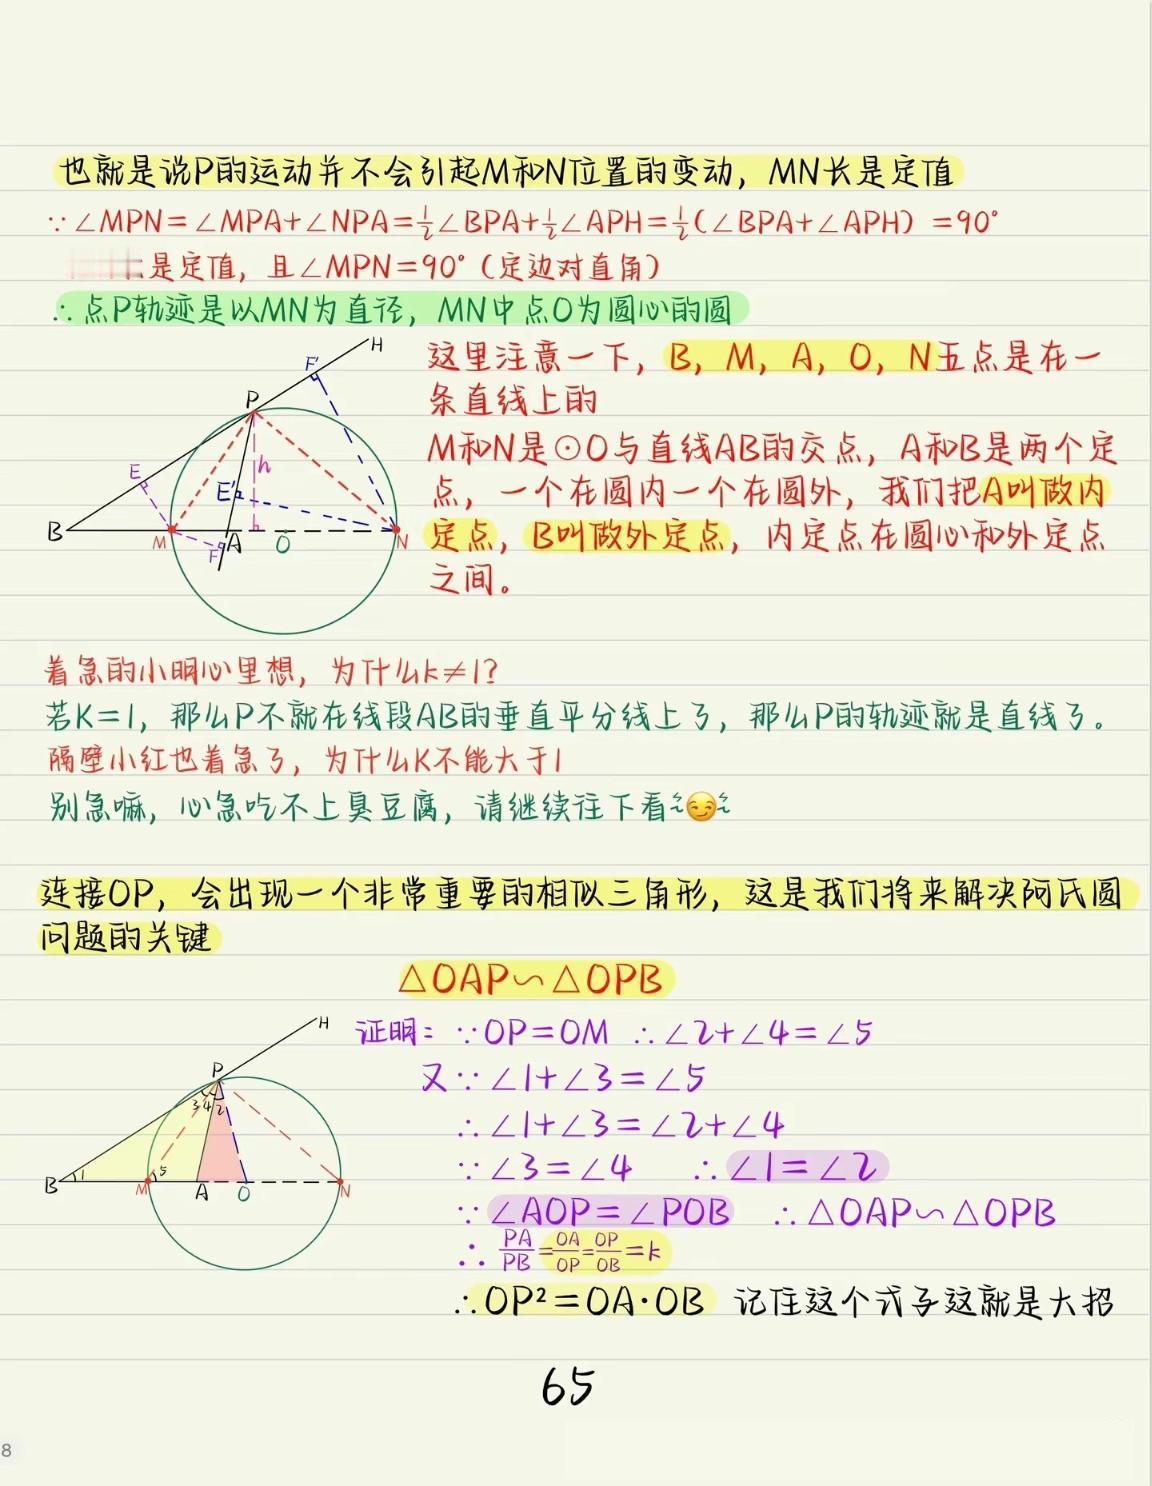 也就是说P的运动并不会引起M和N位置的变动，MN长是定值
∵∠MPN=∠MPA+∠NPA=½∠BPA+½∠APH=½(∠BPA+∠APH)=90°
是定值，且∠MPN=90°(定边对直角)
∴点P轨迹是以MN为直径，MN中点O为圆心的圆
H
F'
P
E
h
E'
B
M
F
A
O
N
这里注意一下，B，M，A，O，N五点是在一
条直线上的
M和N是⊙O与直线AB的交点，A和B是两个定
点，一个在圆内一个在圆外，我们把A叫做内
定点，B叫做外定点，内定点在圆心和外定点
之间。
着急的小明心里想，为什么k≠1?
若K=1，那么P不就在线段AB的垂直平分线上了，那么P的轨迹就是直线了。
隔壁小红也着急了，为什么K不能大于1
别急嘛，心急吃不上臭豆腐，请继续往下看~😏~
连接OP，会出现一个非常重要的相似三角形，这是我们将来解决阿氏圆
问题的关键
△OAP∽△OPB
H
P
3 4 2
B
1
M
5
A
O
N
证明：∵OP=OM ∴∠2+∠4=∠5
又∵∠1+∠3=∠5
∴∠1+∠3=∠2+∠4
∵∠3=∠4 ∴∠1=∠2
∵∠AOP=∠POB ∴△OAP∽△OPB
∴PA/PB=OA/OP=OP/OB=k
∴OP²=OA·OB 记住这个式子这就是大招
65
8